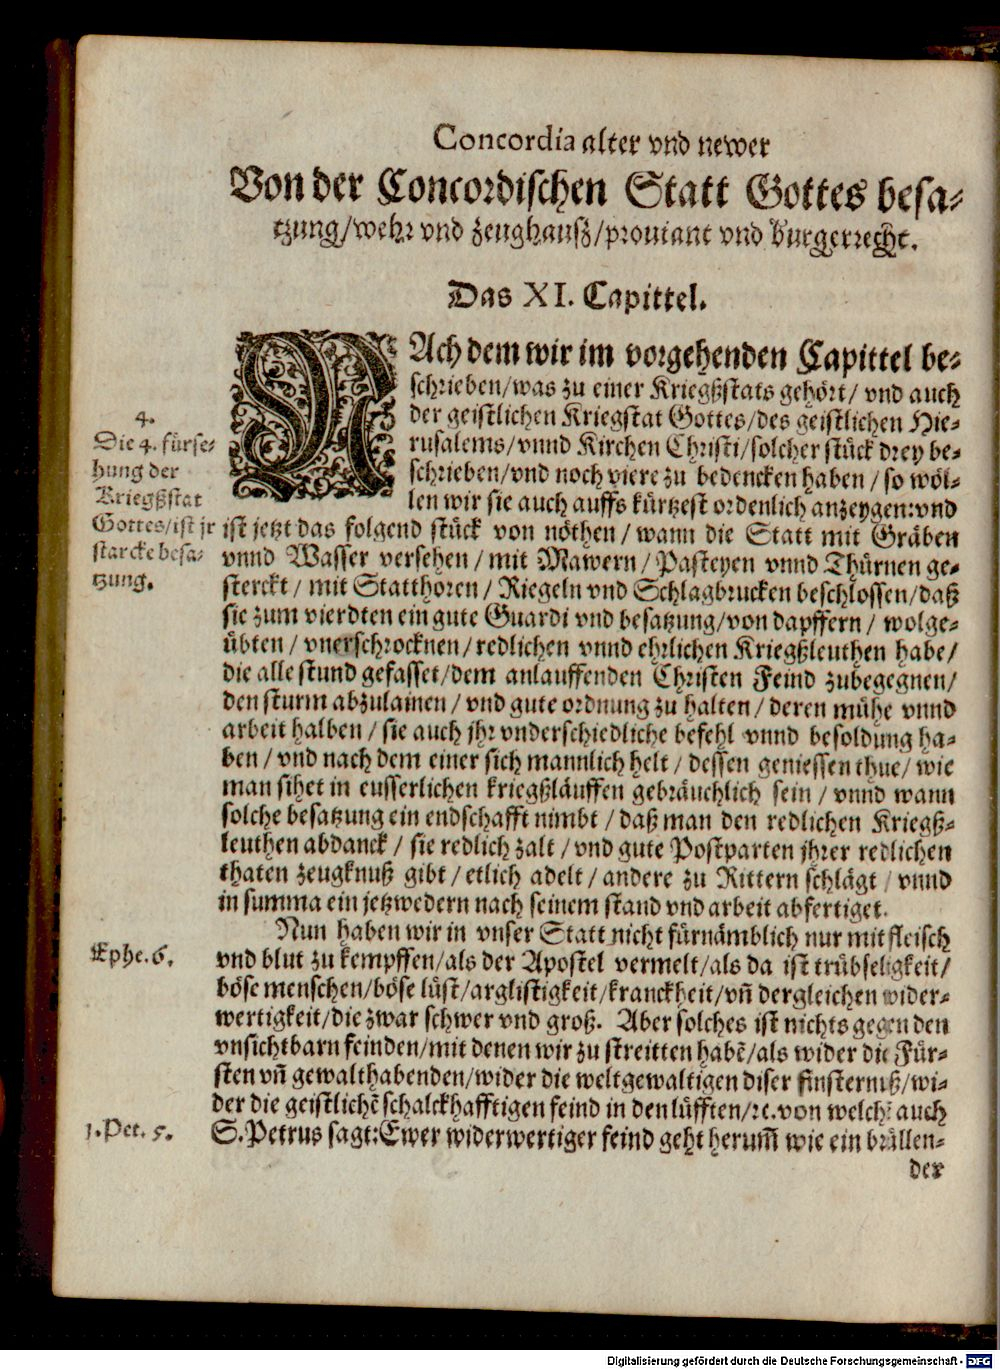 Concordia alter vnd newer
Von der Concordischen Statt Gottes besa-
tzung/wehr vnd zeughausz/prouiant vnd burgerrecht.
Das XI. Capittel.
NAch dem wir im vorgehenden Capittel be-
schrieben/was zu einer Kriegßstats gehört/ vnd auch
der geistlichen Kriegstat Gottes/des geistlichen Hie-
rusalems/vnnd Kirchen Christi/solcher stück drey be-
schrieben/vnd noch viere zu bedencken haben/so wöl-
len wir sie auch auffs kürtzest ordenlich anzeygen:vnd
4.
Die 4. fürse-
hung der
Kriegßstat
Gottes/ist jr
starcke besa-
tzung.
ist jetzt das folgend stück von nöthen/wann die Statt mit Gräben
vnnd Wasser versehen/mit Mawern/Pasteyen vnnd Thürnen ge-
sterckt/mit Statthoren/Riegeln vnd Schlagbrucken beschlossen/daß
sie zum vierdten ein gute Guardi vnd besatzung/von dapffern/wolge-
übten/vnerschrocknen/redlichen vnnd ehrlichen Kriegßleuthen habe/
die alle stund gefasset/dem anlauffenden Christen Feind zubegegnen/
den sturm abzulainen/vnd gute ordnung zu halten/deren mühe vnnd
arbeit halben/sie auch jhr vnderschiedliche befehl vnnd besoldung ha-
ben/vnd nach dem einer sich mannlich helt/dessen geniessen thue/wie
man sihet in eusserlichen kriegßläuffen gebräuchlich sein/vnnd wann
solche besatzung ein endschafft nimbt/daß man den redlichen Kriegß-
leuthen abdanck/sie redlich zalt/vnd gute Postparten jhrer redlichen
thaten zeugknuß gibt/etlich adelt/andere zu Rittern schlägt/vnnd
in summa ein jetzwedern nach seinem stand vnd arbeit abfertiget.
Nun haben wir in vnser Statt nicht fürnämblich nur mit fleisch
Ephe. 6.
vnd blut zu kempffen/als der Apostel vermelt/als da ist trübseligkeit/
böse menschen/böse lüst/arglistigkeit/kranckheit/vñ dergleichen wider-
wertigkeit/die zwar schwer vnd groß. Aber solches ist nichts gegen den
vnsichtbarn feinden/mit denen wir zu streitten habẽ/als wider die Für-
sten vñ gewalthabenden/wider die weltgewaltigen diser finsternuß/wi-
der die geistlichẽ schalckhafftigen feind in den lüfften/ꝛc.von welchẽ auch
1. Pet. 5.
S. Petrus sagt:Ewer widerwertiger feind geht herum̃ wie ein brüllen-
der
Digitalisierung gefördert durch die Deutsche Forschungsgemeinschaft - DFG